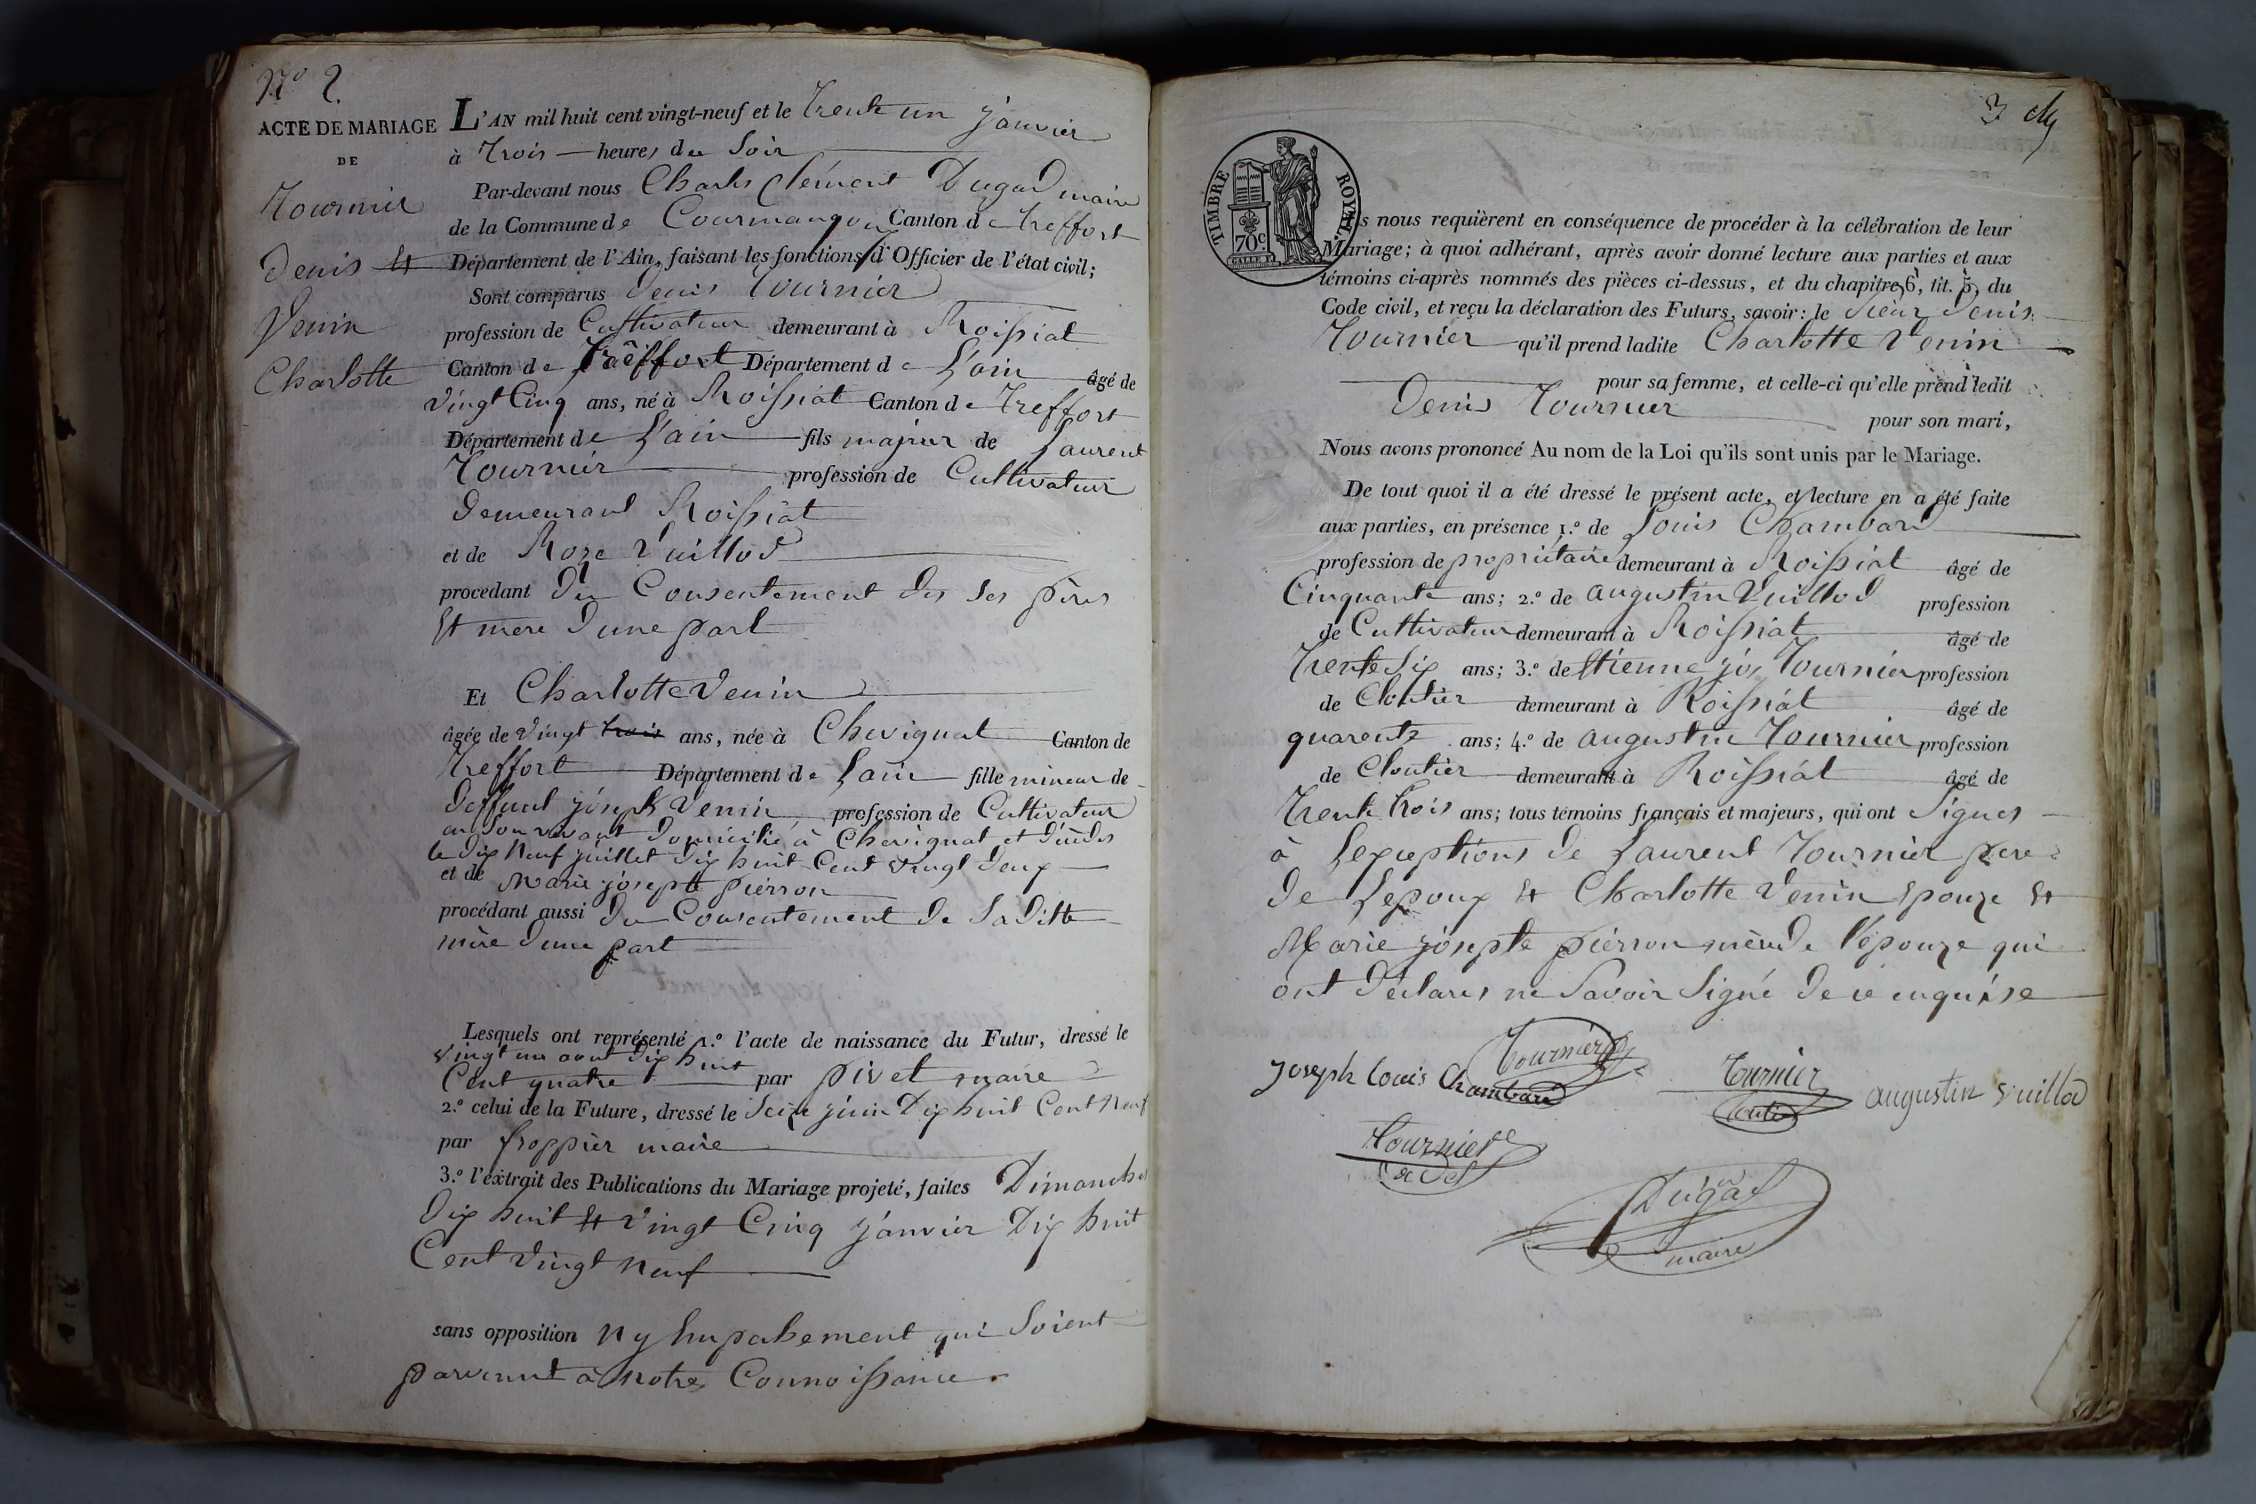 N° 2.
ACTE DE MARIAGE
DE
Tournier
Denis et
Venin
Charlotte
L'AN mil huit cent vingt-neuf et le trente un janvier
à trois heures du Soir
Par-devant nous Charles Clément Dugad maire
de la Commune de Courmangoux Canton de treffort
Département de l'Ain, faisant les fonctions d'Officier de l'état civil;
Sont comparus Denis Tournier
profession de Cultivateur demeurant à Roissiat
Canton de Treffort Département de L'ain âgé de
vingt Cinq ans, né à Roissiat Canton de treffort
Département de L'ain fils majeur de Laurent
Tournier profession de Cultivateur
Demeurant Roissiat
et de Roze Vuillod
procedant Du Consentement des ses pères
Et mere D'une part
Et Charlotte Venin
âgée de vingt trois ans, née à Chevignat Canton de
treffort Département de Lain fille mineur de
Deffunt joseph Venin profession de Cultivateur
en Son vivant Domicilié à Chevignat et décédés
le Dix Neuf juillet Dix huit Cent vingt Deux
et de Marie josepte pierron
procédant aussi Du Consentement de Saditte
mère D'une part
Lesquels ont représenté 1.° l'acte de naissance du Futur, dressé le
vingt un aout Dix huit
Cent quatre par pivet maire
2.° celui de la Future, dressé le Seize juin Dix huit Cent Neuf
par froppier maire
3.° l'extrait des Publications du Mariage projeté, faites Dimanches
Dix huit Et vingt Cinq janvier Dix huit
Cent vingt neuf
sans opposition ny Empabement qui Soient
parvenut à Notres Connoissance.
3
TIMBRE ROYAL
70c.
s nous requièrent en conséquence de procéder à la célébration de leur
Mariage; à quoi adhérant, après avoir donné lecture aux parties et aux
témoins ci-après nommés des pièces ci-dessus, et du chapitre 6, tit. 5 du
Code civil, et reçu la déclaration des Futurs, savoir: le Sieur Denis
Tournier qu'il prend ladite Charlotte Venin
pour sa femme, et celle-ci qu'elle prend ledit
Denis Tournier
pour son mari,
Nous avons prononcé Au nom de la Loi qu'ils sont unis par le Mariage.
De tout quoi il a été dressé le présent acte, et lecture en a été faite
aux parties, en présence 1.° de Louis Chambard
profession de propriétaire demeurant à Roissiat âgé de
Cinquante ans; 2.° de augustin Vuillod profession
de Cultivateur demeurant à Roissiat âgé de
trente Six ans; 3.° de Etienne jos Tournier profession
de Cloutier demeurant à Roissiat âgé de
quarente ans; 4.° de augustin Tournier profession
de Cloutier demeurant à Roissiat âgé de
trente trois ans; tous témoins français et majeurs, qui ont Signés
à Lexceptions de Laurent Tournier pere
de Lepoux Et Charlotte Venin Epouze Et
Marie josepte pierron mère de l'épouze qui
ont Déclarés ne Savoir Signé de ce enquise
Joseph Louis Chambard
Tournier
Turnier
augustin Vuillod
Tournier
Dugad
maire